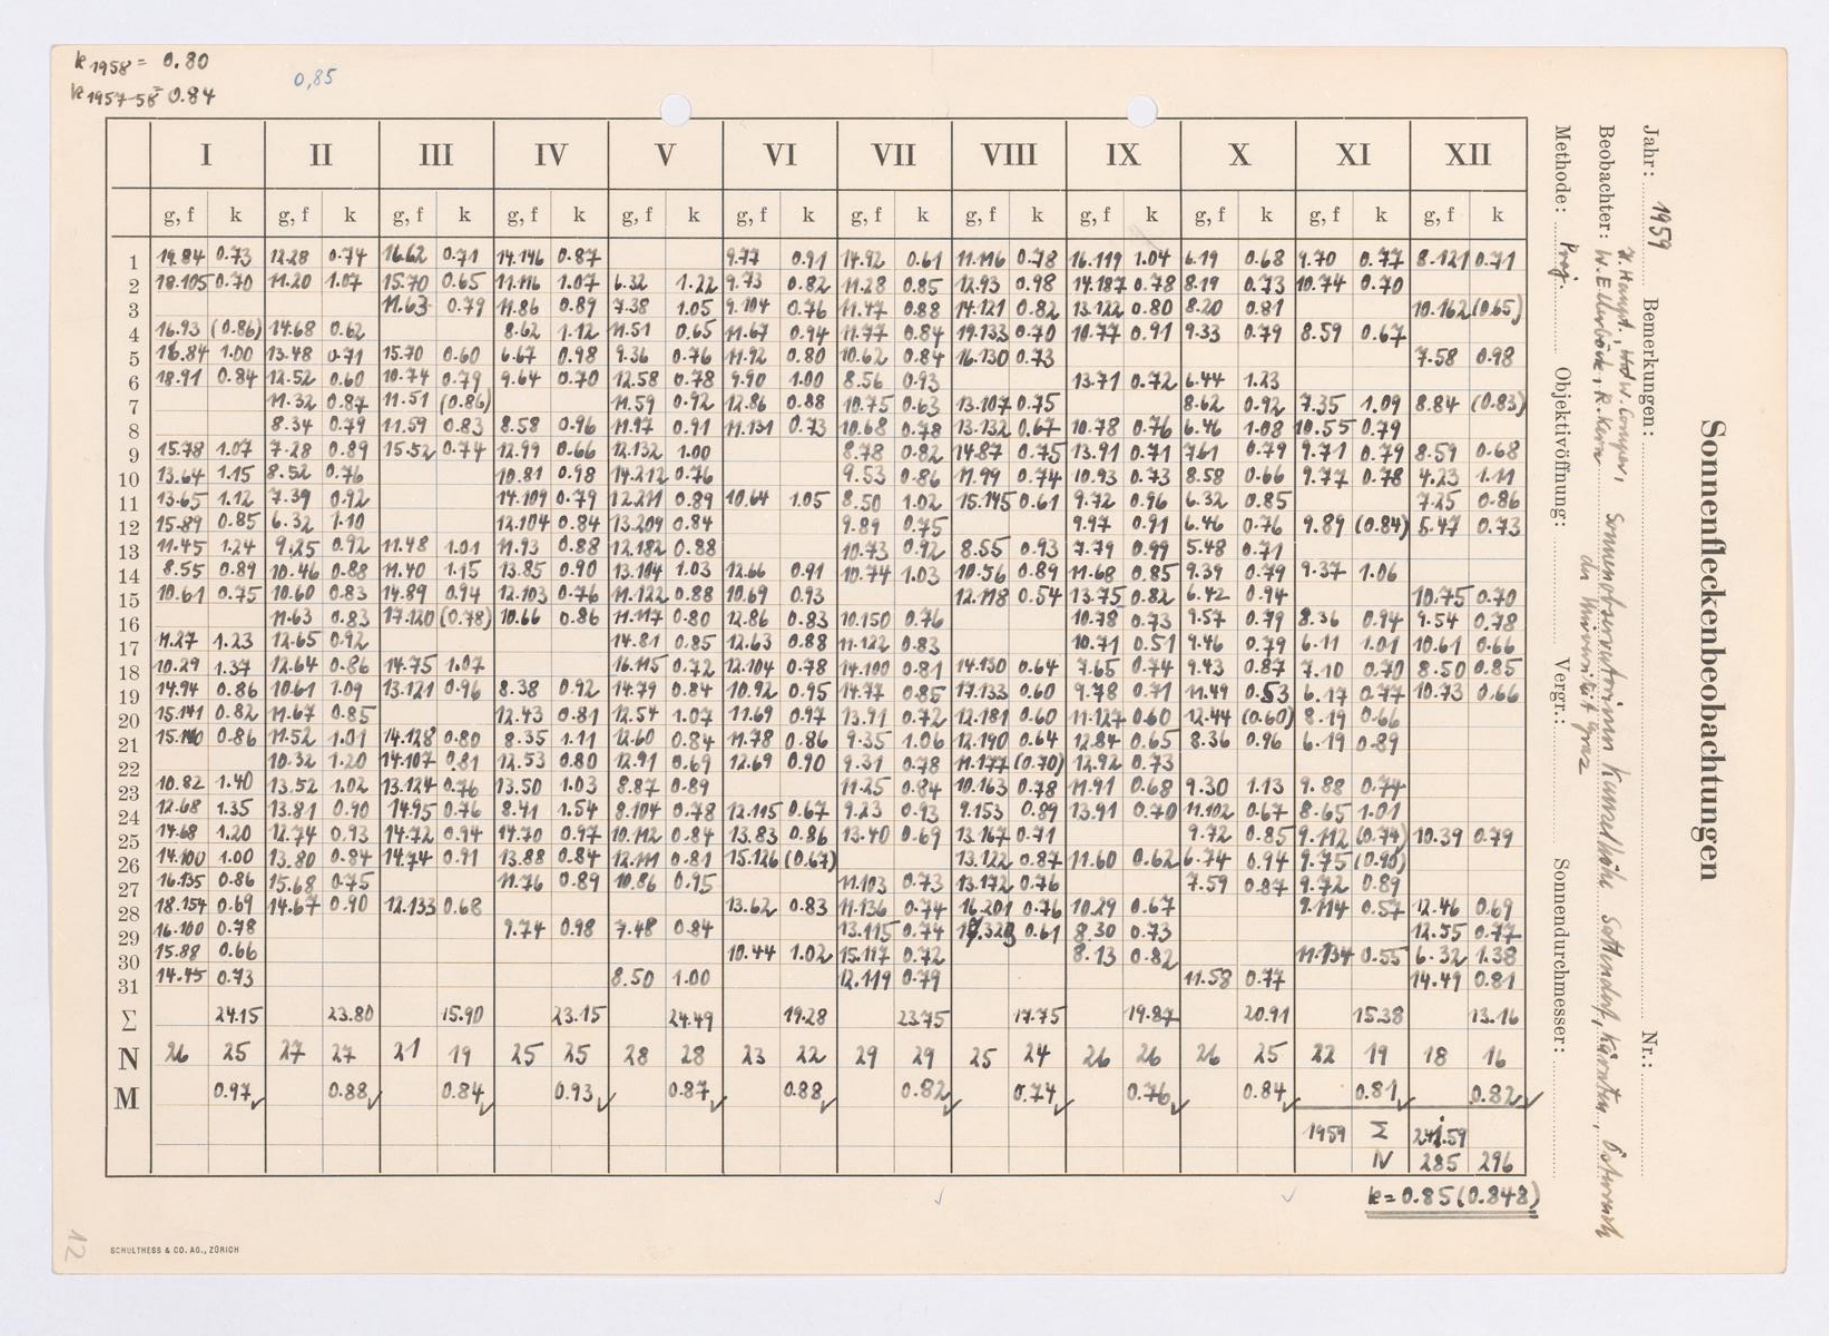 k 1958 = 0.80
k 1957-58 = 0.84
0,85
I II III IV V VI VII VIII IX X XI XII
g, f k g, f k g, f k g, f k g, f k g, f k g, f k g, f k g, f k g, f k g, f k g, f k
1 19.84 0.73 12.28 0.74 16.62 0.71 14.146 0.87 9.77 0.91 14.92 0.61 11.116 0.78 16.119 1.04 6.19 0.68 9.70 0.77 8.121 0.71
2 18.105 0.70 11.20 1.07 15.70 0.65 11.116 1.07 6.32 1.22 9.73 0.82 11.28 0.85 12.93 0.98 14.187 0.78 8.19 0.73 10.74 0.70
3 11.63 0.79 11.86 0.89 7.38 1.05 9.104 0.76 11.47 0.88 14.121 0.82 13.122 0.80 8.20 0.81 10.162 (0.65)
4 16.93 (0.86) 14.68 0.62 8.62 1.12 11.51 0.65 11.67 0.94 11.77 0.84 19.133 0.70 10.77 0.91 9.33 0.79 8.59 0.67
5 16.84 1.00 13.48 0.71 15.70 0.60 6.67 0.98 9.36 0.76 11.92 0.80 10.62 0.84 16.130 0.73 7.58 0.98
6 18.91 0.84 12.52 0.60 10.74 0.79 9.64 0.70 12.58 0.78 9.90 1.00 8.56 0.93 13.71 0.72 6.44 1.23
7 11.32 0.87 11.51 (0.86) 11.59 0.92 12.86 0.88 10.75 0.63 13.107 0.75 8.62 0.92 7.35 1.09 8.84 (0.83)
8 8.34 0.79 11.59 0.83 8.58 0.96 11.97 0.91 11.131 0.73 10.68 0.78 13.132 0.67 10.78 0.76 6.46 1.08 10.55 0.79
9 15.78 1.07 7.28 0.89 15.52 0.74 12.99 0.66 12.132 1.00 8.78 0.82 14.87 0.75 13.91 0.71 7.61 0.79 9.71 0.79 8.59 0.68
10 13.64 1.15 8.52 0.76 10.81 0.98 14.212 0.76 9.53 0.86 11.99 0.74 10.93 0.73 8.58 0.66 9.77 0.78 4.23 1.11
11 13.65 1.12 7.39 0.92 14.109 0.79 12.211 0.89 10.64 1.05 8.50 1.02 15.145 0.61 9.72 0.96 6.32 0.85 7.25 0.86
12 15.89 0.85 6.32 1.10 12.104 0.84 13.209 0.84 9.89 0.75 9.97 0.91 6.46 0.76 9.89 (0.84) 5.47 0.73
13 11.45 1.24 9.25 0.92 11.48 1.01 11.93 0.88 12.182 0.88 10.73 0.92 8.55 0.93 7.79 0.99 5.48 0.71
14 8.55 0.89 10.46 0.88 11.40 1.15 13.85 0.90 13.104 1.03 12.66 0.91 10.74 1.03 10.56 0.89 11.68 0.85 9.39 0.79 9.37 1.06
15 10.61 0.75 10.60 0.83 14.89 0.94 12.103 0.76 11.122 0.88 10.69 0.93 12.118 0.54 13.75 0.82 6.42 0.94 10.75 0.70
16 11.63 0.83 17.120 (0.78) 10.66 0.86 11.117 0.80 12.86 0.83 10.150 0.76 10.78 0.73 9.57 0.79 8.36 0.94 9.54 0.78
17 11.27 1.23 12.65 0.92 14.81 0.85 12.63 0.88 11.122 0.83 10.71 0.51 9.46 0.79 6.11 1.01 10.61 0.66
18 10.29 1.37 12.64 0.86 14.75 1.07 16.115 0.72 12.104 0.78 14.100 0.81 14.130 0.64 7.65 0.74 9.43 0.87 7.10 0.70 8.50 0.85
19 14.94 0.86 10.61 1.09 13.121 0.96 8.38 0.92 14.79 0.84 10.92 0.95 14.77 0.85 17.133 0.60 9.78 0.71 11.49 0.53 6.17 0.77 10.73 0.66
20 15.141 0.82 11.67 0.85 12.43 0.81 12.54 1.07 11.69 0.97 13.91 0.72 12.181 0.60 11.127 0.60 12.44 (0.60) 8.19 0.66
21 15.140 0.86 11.52 1.01 14.128 0.80 8.35 1.11 12.60 0.84 11.78 0.86 9.35 1.06 12.190 0.64 12.84 0.65 8.36 0.96 6.19 0.89
22 10.32 1.20 14.107 0.81 12.53 0.80 12.91 0.69 12.69 0.90 9.31 0.78 11.177 (0.70) 12.92 0.73
23 10.82 1.40 13.52 1.02 13.124 0.76 13.50 1.03 8.87 0.89 11.25 0.84 10.163 0.78 11.91 0.68 9.30 1.13 9.88 0.74
24 12.68 1.35 13.81 0.90 14.95 0.76 8.41 1.54 8.104 0.78 12.115 0.67 9.23 0.93 9.153 0.89 13.91 0.70 11.102 0.67 8.65 1.01
25 14.68 1.20 12.74 0.93 14.72 0.94 14.70 0.97 10.112 0.84 13.83 0.86 13.40 0.69 13.167 0.71 9.72 0.85 9.112 (0.74) 10.39 0.79
26 14.100 1.00 13.80 0.84 14.74 0.91 13.88 0.84 12.111 0.81 15.126 (0.67) 13.122 0.87 11.60 0.62 6.74 0.94 9.75 (0.90)
27 16.135 0.86 15.68 0.75 11.76 0.89 10.86 0.95 11.103 0.73 13.172 0.76 7.59 0.87 9.72 0.89
28 18.154 0.69 14.67 0.90 12.133 0.68 13.62 0.83 11.136 0.74 16.201 0.76 10.29 0.67 9.114 0.57 12.46 0.69
29 16.100 0.78 9.74 0.98 7.48 0.84 13.115 0.74 0.61 8.30 0.73 12.55 0.77
30 15.88 0.66 10.44 1.02 15.117 0.72 8.13 0.82 11.134 0.55 6.32 1.38
31 14.45 0.73 8.50 1.00 12.119 0.79 11.58 0.77 14.49 0.81
Σ 24.15 23.80 15.90 23.15 24.49 19.28 23.75 17.75 19.87 20.91 15.38 13.16
N 26 25 27 27 21 19 25 25 28 28 23 22 29 29 25 24 26 26 26 25 22 19 18 16
M 0.97 0.88 0.84 0.93 0.87 0.88 0.82 0.74 0.76 0.84 0.81 0.82
1959 Σ 241.59
N 285 296
k = 0.85 (0.848)
SCHULTHESS & CO. AG., ZÜRICH
12
Sonnenfleckenbeobachtungen
Jahr: 1959 Bemerkungen: Nr.:
H. Haupt, W. Comper,
Beobachter: W. Ellerböck, R. Kern Sonnenobservatorium Kanzelhöhe Sattendorf, Kärnten, Österreich
der Universität Graz
Methode: Proj. Objektivöffnung: Vergr.: Sonnendurchmesser: